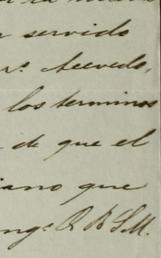 servido
Acevedo,
los terminos
de que el
iano que
Q B S M.